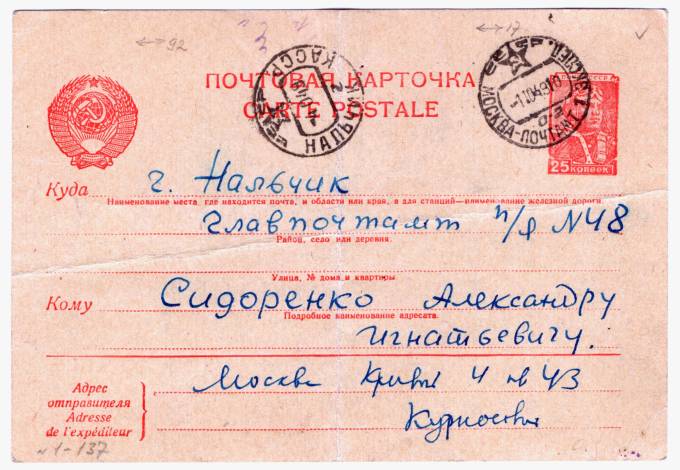 ↔ 92
↔ 17
КАССР
НАЛЬЧИК
МОСКВА-ПОЧТАМТ
ПОЧТОВАЯ КАРТОЧКА
CARTE POSTALE
25 КОПЕЕК
Куда г. Нальчик
Наименование места, где находится почта, и области или края, а для станций—наименование железной дороги.
Главпочтамт п/я N 48
Район, село или деревня.
Улица, № дома и квартиры.
Кому Сидоренко Александру
Подробное наименование адресата.
Игнатьевичу.
Адрес
отправителя
Adresse
de l'expéditeur
Москва
4
43
№1-137